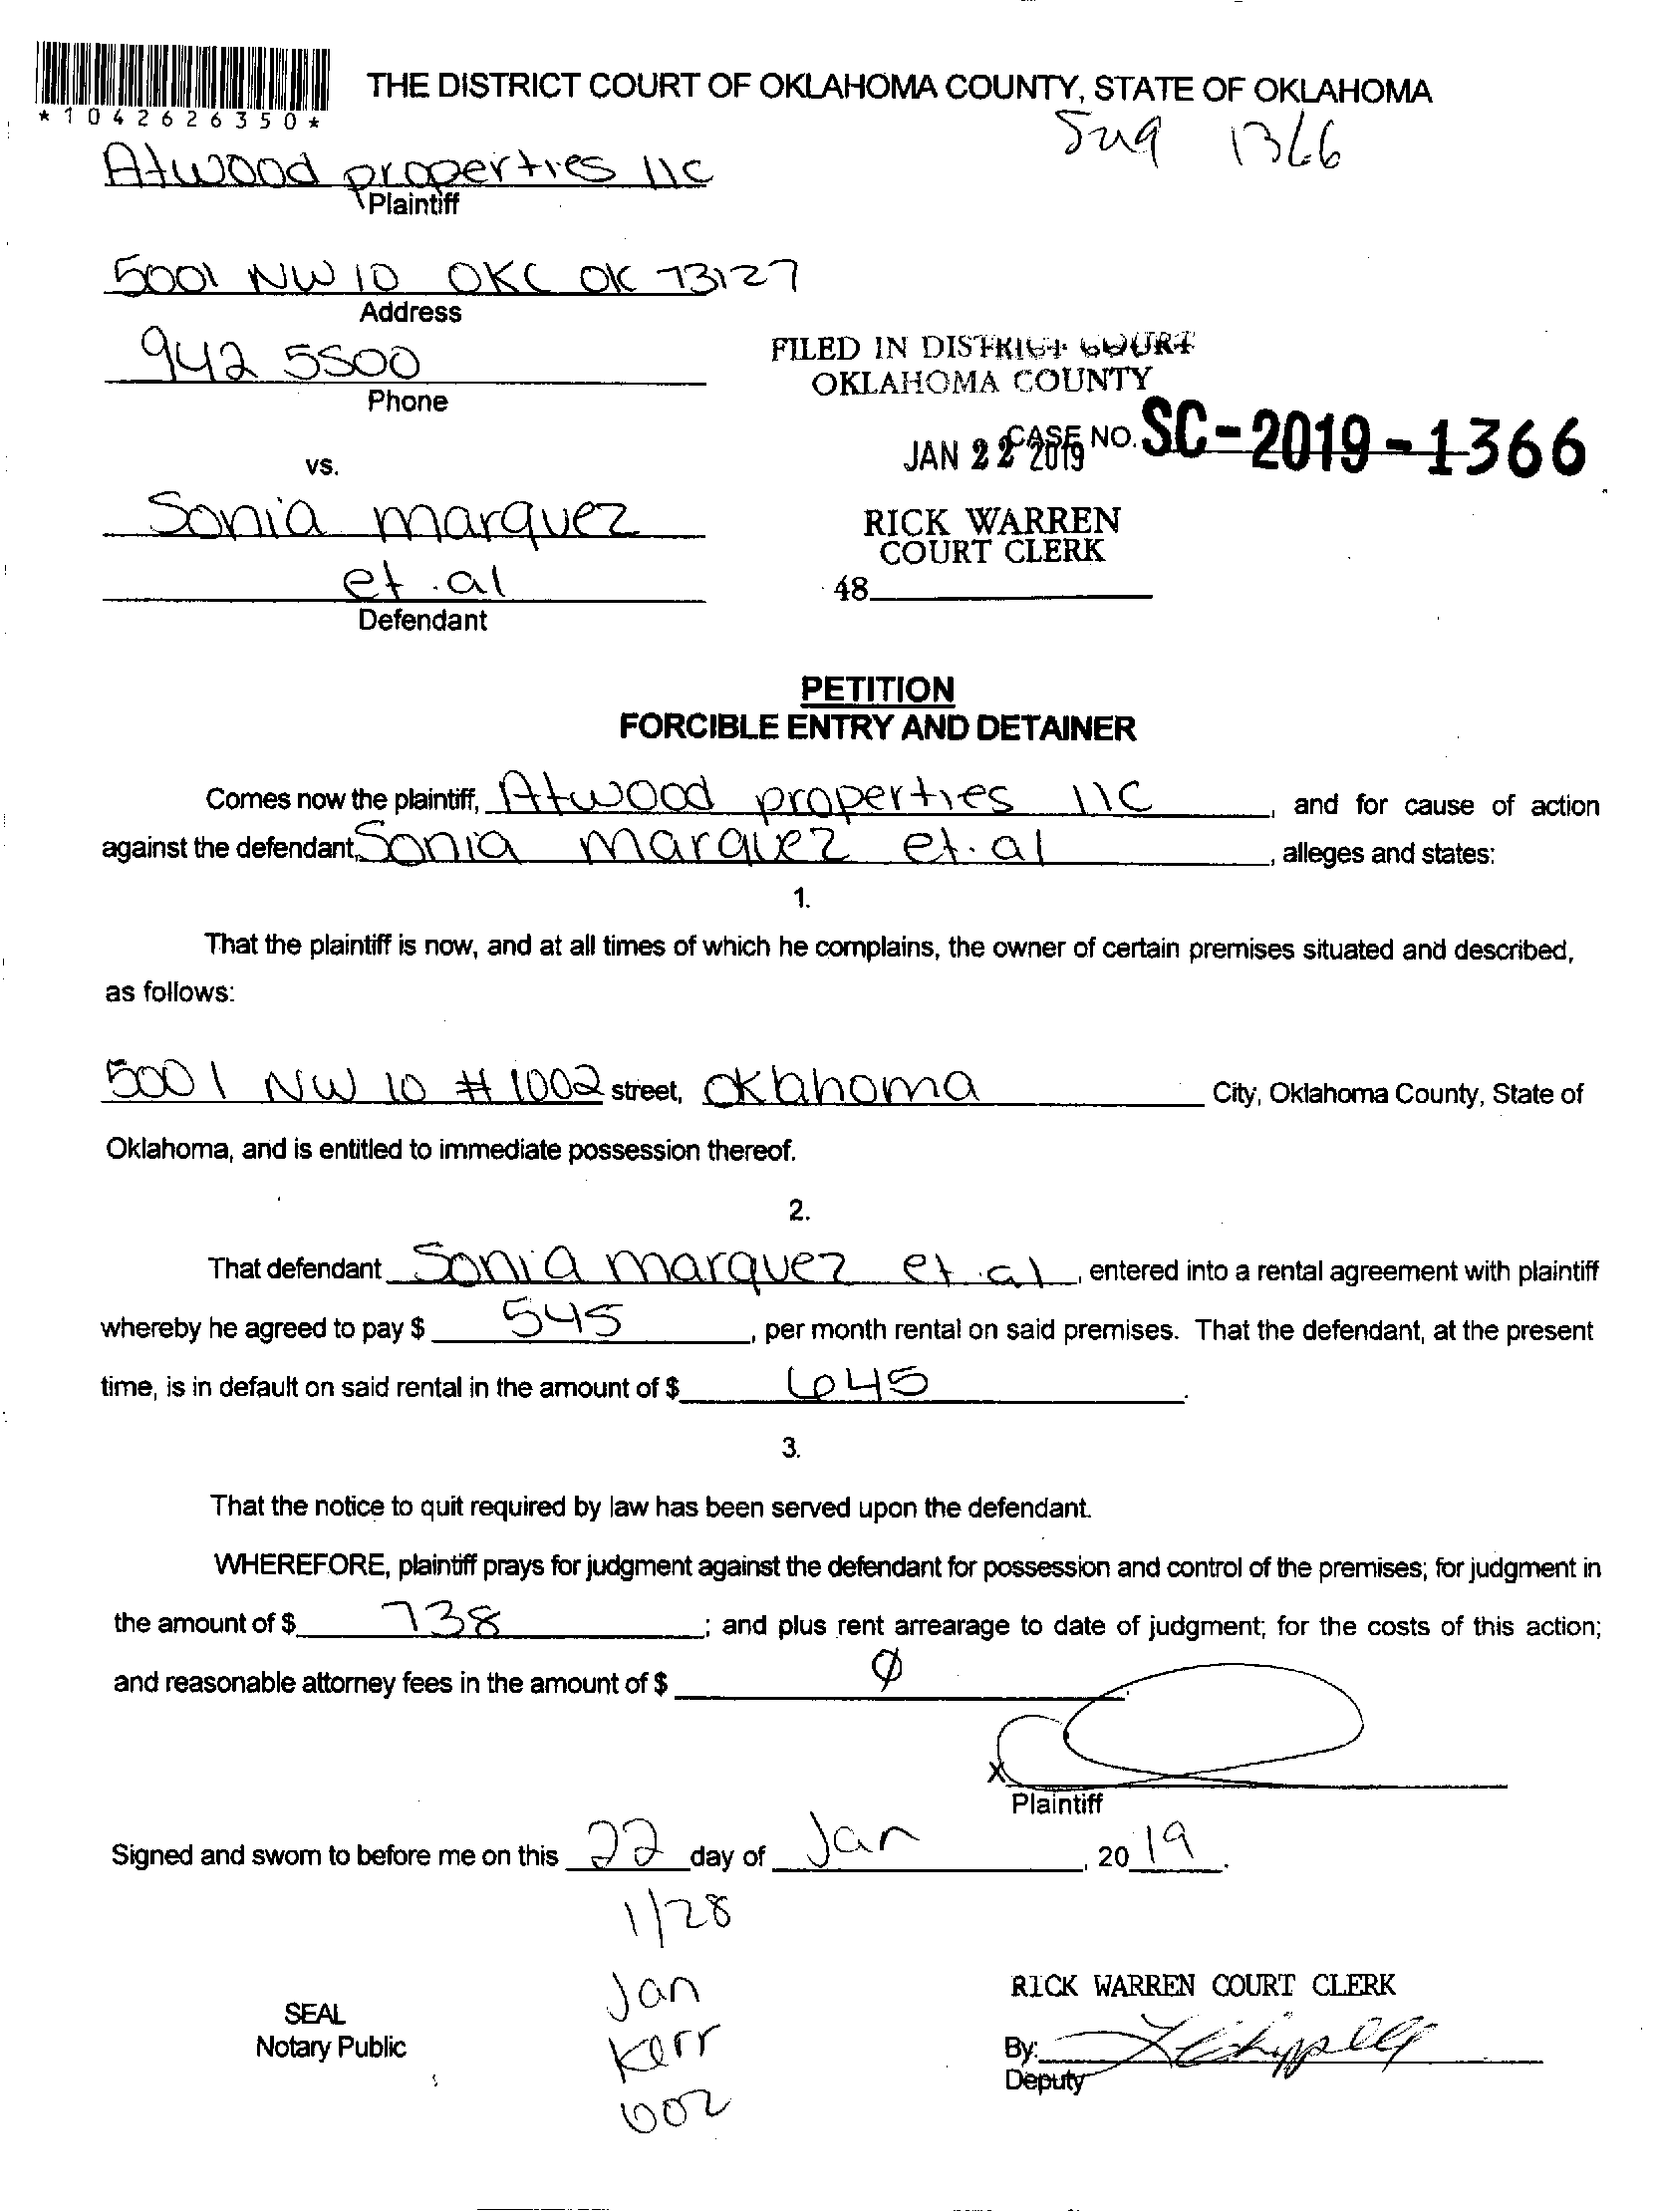 THE DISTRICT COURT OF OKLAHOMA COUNTY, STATE OF OKLAHOMA
*1042626350*
1366
Atwood properties llc
Plaintiff
5001 NW 10 OKC OK 73127
Address
942 5500
Phone
FILED IN DISTRICT COURT
OKLAHOMA COUNTY
JAN 22 2019
CASE NO. SC-2019-1366
vs.
Sonia marquez
et.al
Defendant
RICK WARREN
COURT CLERK
48
PETITION
FORCIBLE ENTRY AND DETAINER
Comes now the plaintiff, Atwood properties llc, and for cause of action
against the defendant, Sonia marquez et.al, alleges and states:
1.
That the plaintiff is now, and at all times of which he complains, the owner of certain premises situated and described,
as follows:
5001 NW 10 #1002 street, Oklahoma City, Oklahoma County, State of
Oklahoma, and is entitled to immediate possession thereof.
2.
That defendant Sonia marquez et.al, entered into a rental agreement with plaintiff
whereby he agreed to pay $ 545, per month rental on said premises. That the defendant, at the present
time, is in default on said rental in the amount of $ 645.
3.
That the notice to quit required by law has been served upon the defendant.
WHEREFORE, plaintiff prays for judgment against the defendant for possession and control of the premises; for judgment in
the amount of $ 738; and plus rent arrearage to date of judgment; for the costs of this action;
and reasonable attorney fees in the amount of $ Ø.
X
Plaintiff
Signed and sworn to before me on this 22 day of Jan, 2019.
1/28
Jan
Kerr
602
SEAL
Notary Public
RICK WARREN COURT CLERK
By:
Deputy